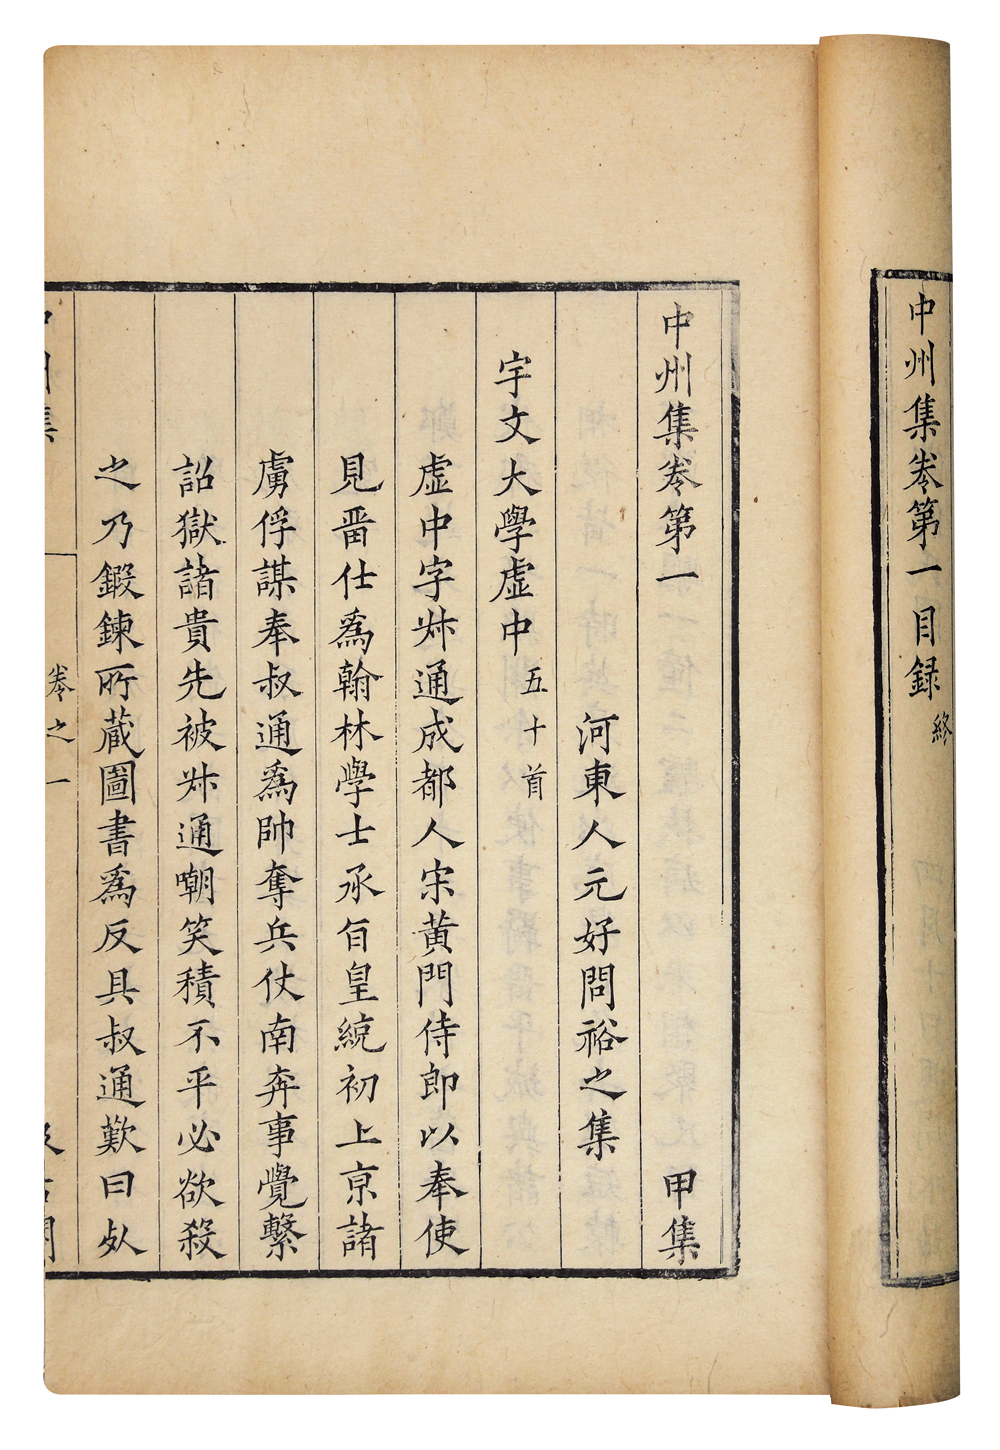 中州集卷第一目録終
中州集卷第一 甲集
河東人元好問裕之集
宇文大學虛中五十首
虛中字叔通成都人宋黃門侍郎以奉使
見畱仕爲翰林學士承旨皇統初上京諸
虜俘謀奉叔通爲帥奪兵仗南奔事覺繫
詔獄諸貴先被叔通嘲笑積不平必欲殺
之乃鍛鍊所藏圖書爲反具叔通歎曰死
中州集 卷之一 汲古閣